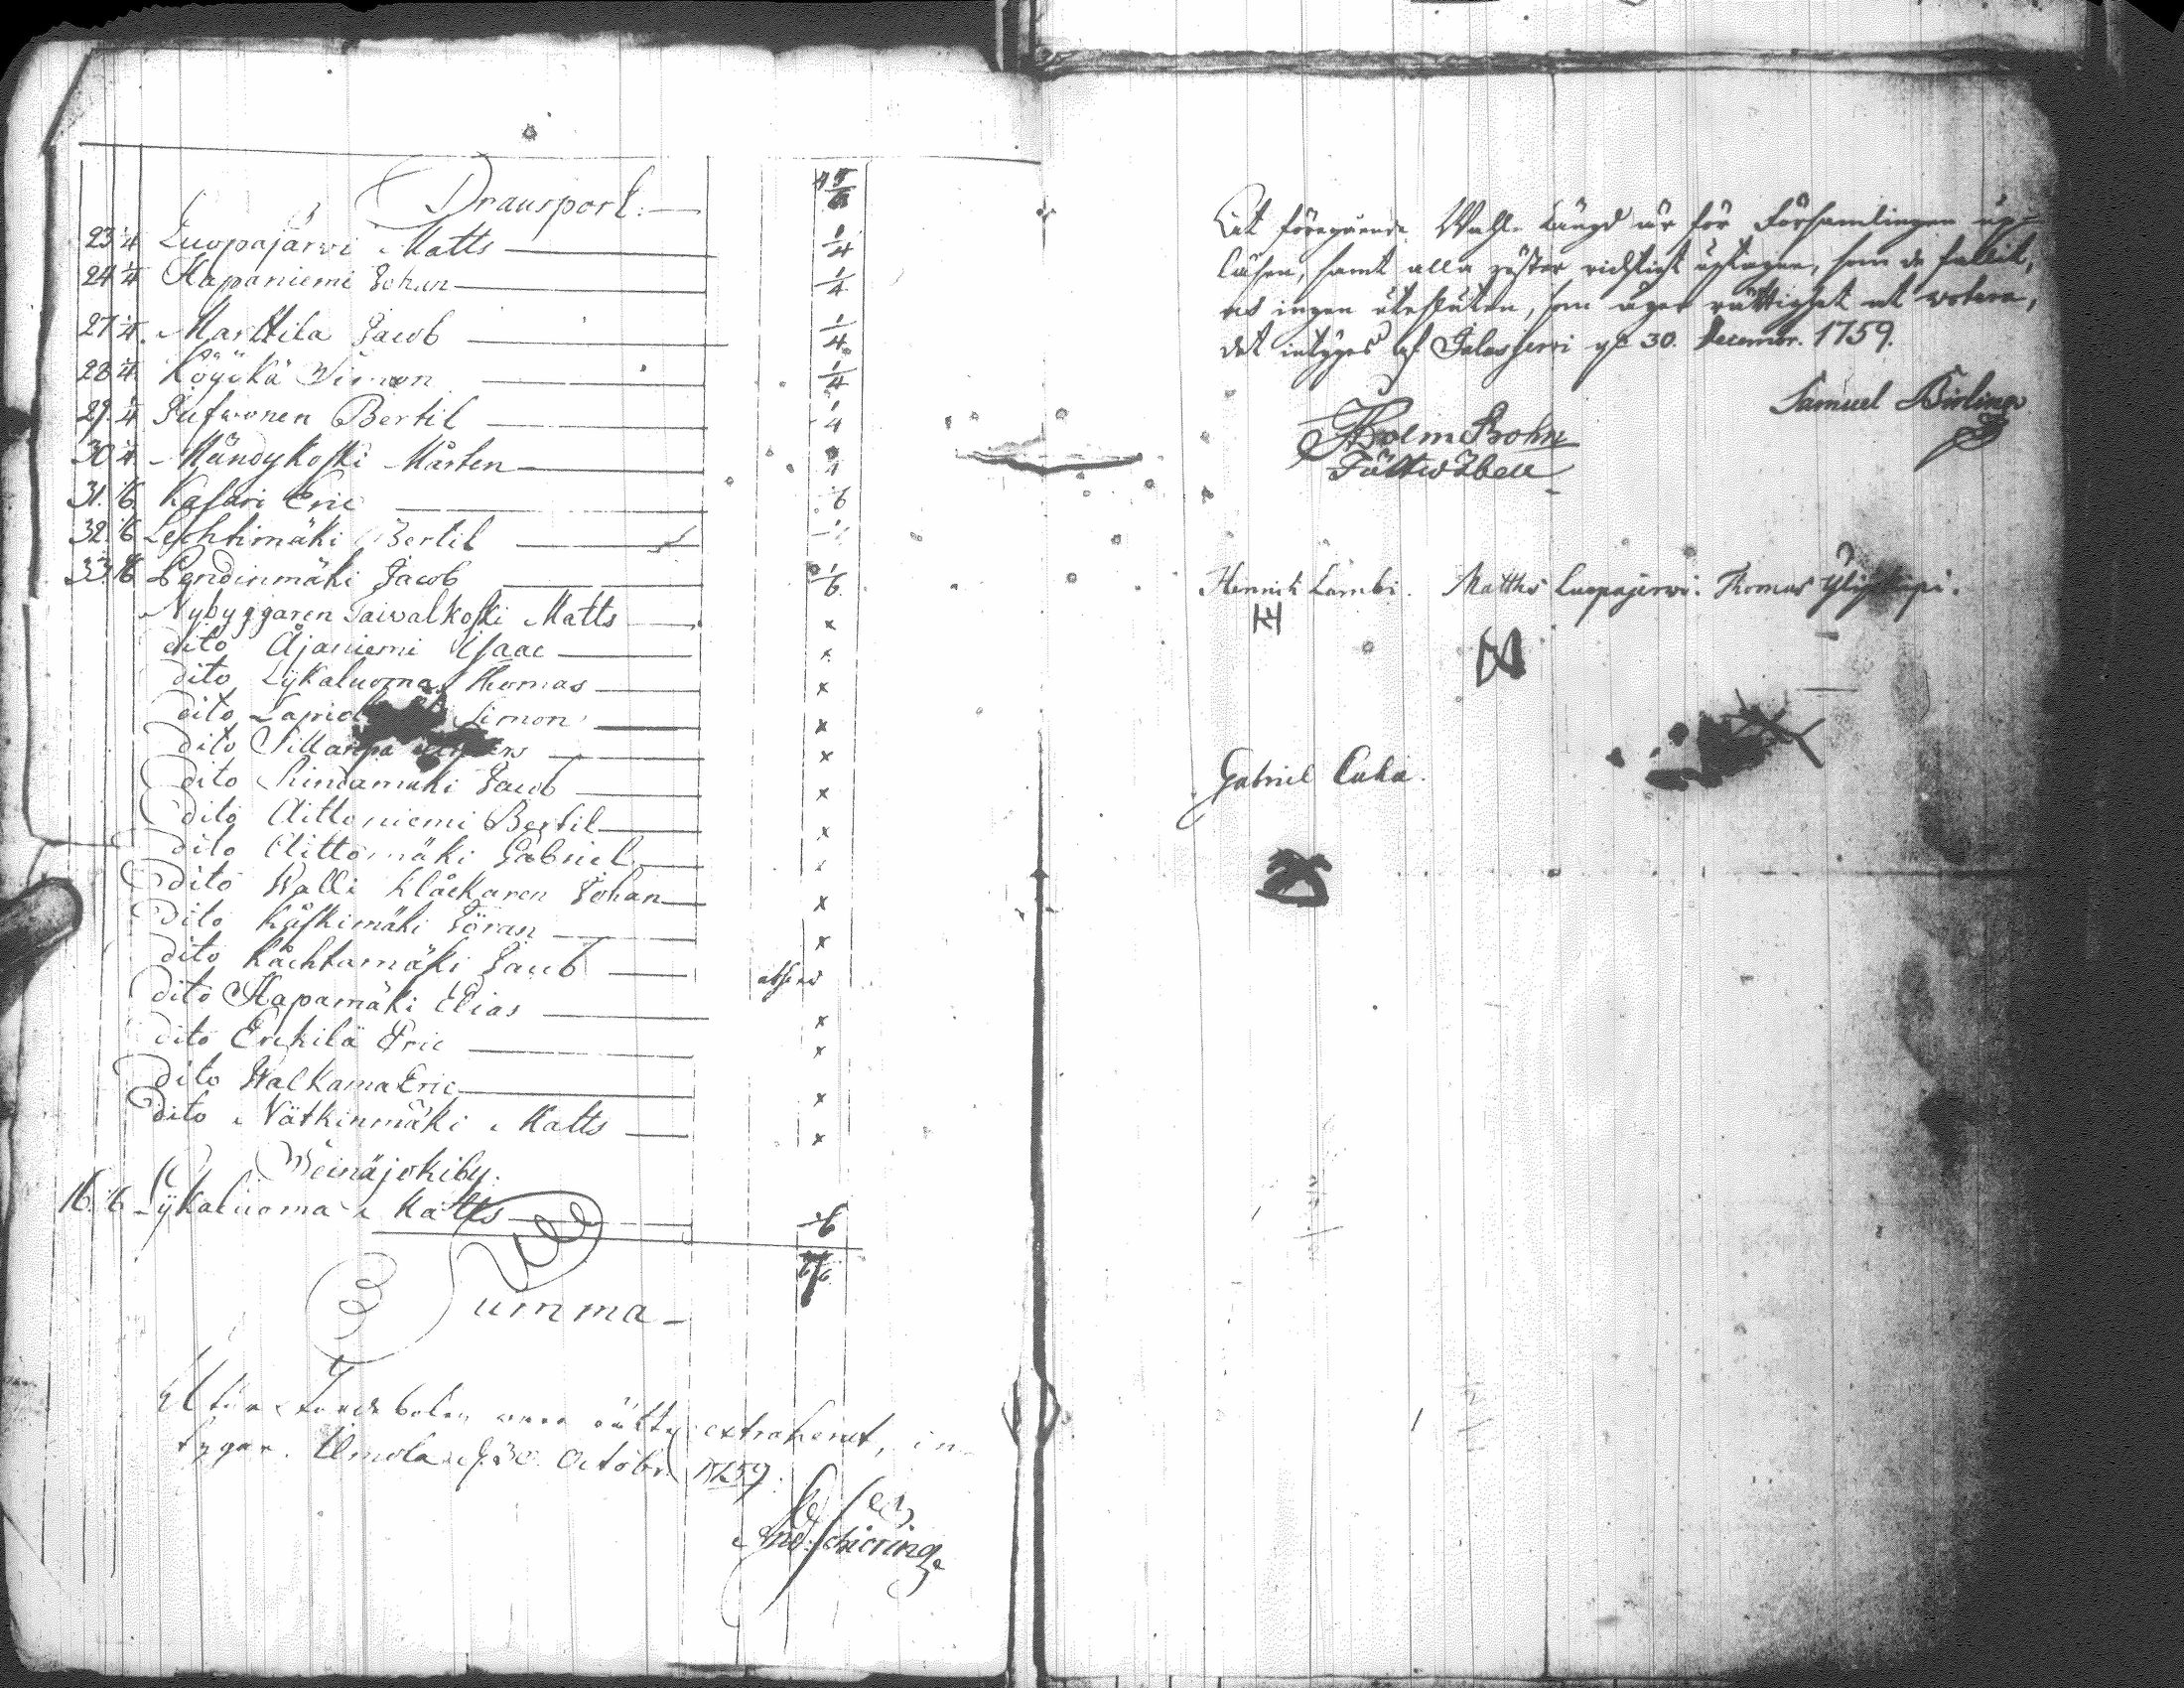 Transport.
23. 1/4 Luopajärwi Matts 1/4
24 1/4 Hapaniemi Johan 1/4
27 1/4. Marttila Jacob 1/4
28 1/4. Köykä Simon 1/4
29. 1/4 Jufwonen Bertil 1/4
30 1/4 Mändykoski Mårten 1/4
31. 1/6 Kasari Eric 1/6
32. 1/6 Lechtimäki Bertil
33. 1/6 Lendinmäki Jacob 1/6
Nybyggaren Taiwalkoski Matts x
dito Äijäniemi Isaac x
dito Lykaluoma Thomas x
dito Simon x
dito Sillanpä x
dito Rindamäki Jacob x
dito Aittoniemi Bertil x
dito Aittomäki Gabriel x
dito Walli Klåckaren Johan x
dito Käskimäki Göran x
dito Kåchtamäki Jacob absens
dito Hapamäki Elias x
dito Erckilä Eric x
dito Walkama Eric x
dito Nätkinmäki Matts x
Seinäjokiby.
16. 1/6 Lykaluoma Matts 1/6
Summa
At för Jordeboken vara rätt extraherat, in-
tygar. Ilmola d. 30. Octobr. 1759.
And: Schæring
Att föregående Wahl Längd är för Församlingen up-
läsen, samt alla röster richtigt uptagne, som de fallit,
och ingen utesluten, som äger rättighet at votera,
det intyges af Jalasjerfvi d. 30. Decembr. 1759.
Samuel
Holm Bohm
Fältwäbell
Henrich Lambi. Matths Luopajerwi. Thomas
Gabriel Cuha.